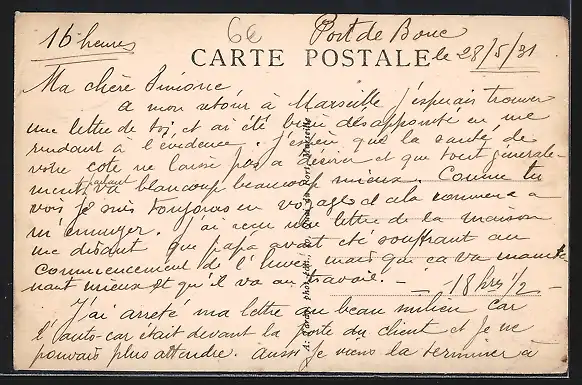 16 heures
6e
Port de Bouc
CARTE POSTALE
le 28/5/31
Ma chère Simone
a mon retour à Marseille j'espérais trouver
une lettre de toi, et ai été bien désappointé en me
rendant à l'évidence. J'espère que la santé, de
votre coté ne laisse pas a désirer et que tout générale-
ment va beaucoup beaucoup mieux. Comme tu
vois je suis toujours en voyage et cela commence a
m'ennuyer. J'ai reçu une lettre de la maison
me disant que papa avait été souffrant au
commencement de l' mais que ça va mainte
nant mieux et qu'il va au travail. — 18 hrs 1/2 —
J'ai arrêté ma lettre au beau milieu car
l'auto-car était devant la porte du client et je ne
pouvais plus attendre. aussi je viens la terminer à